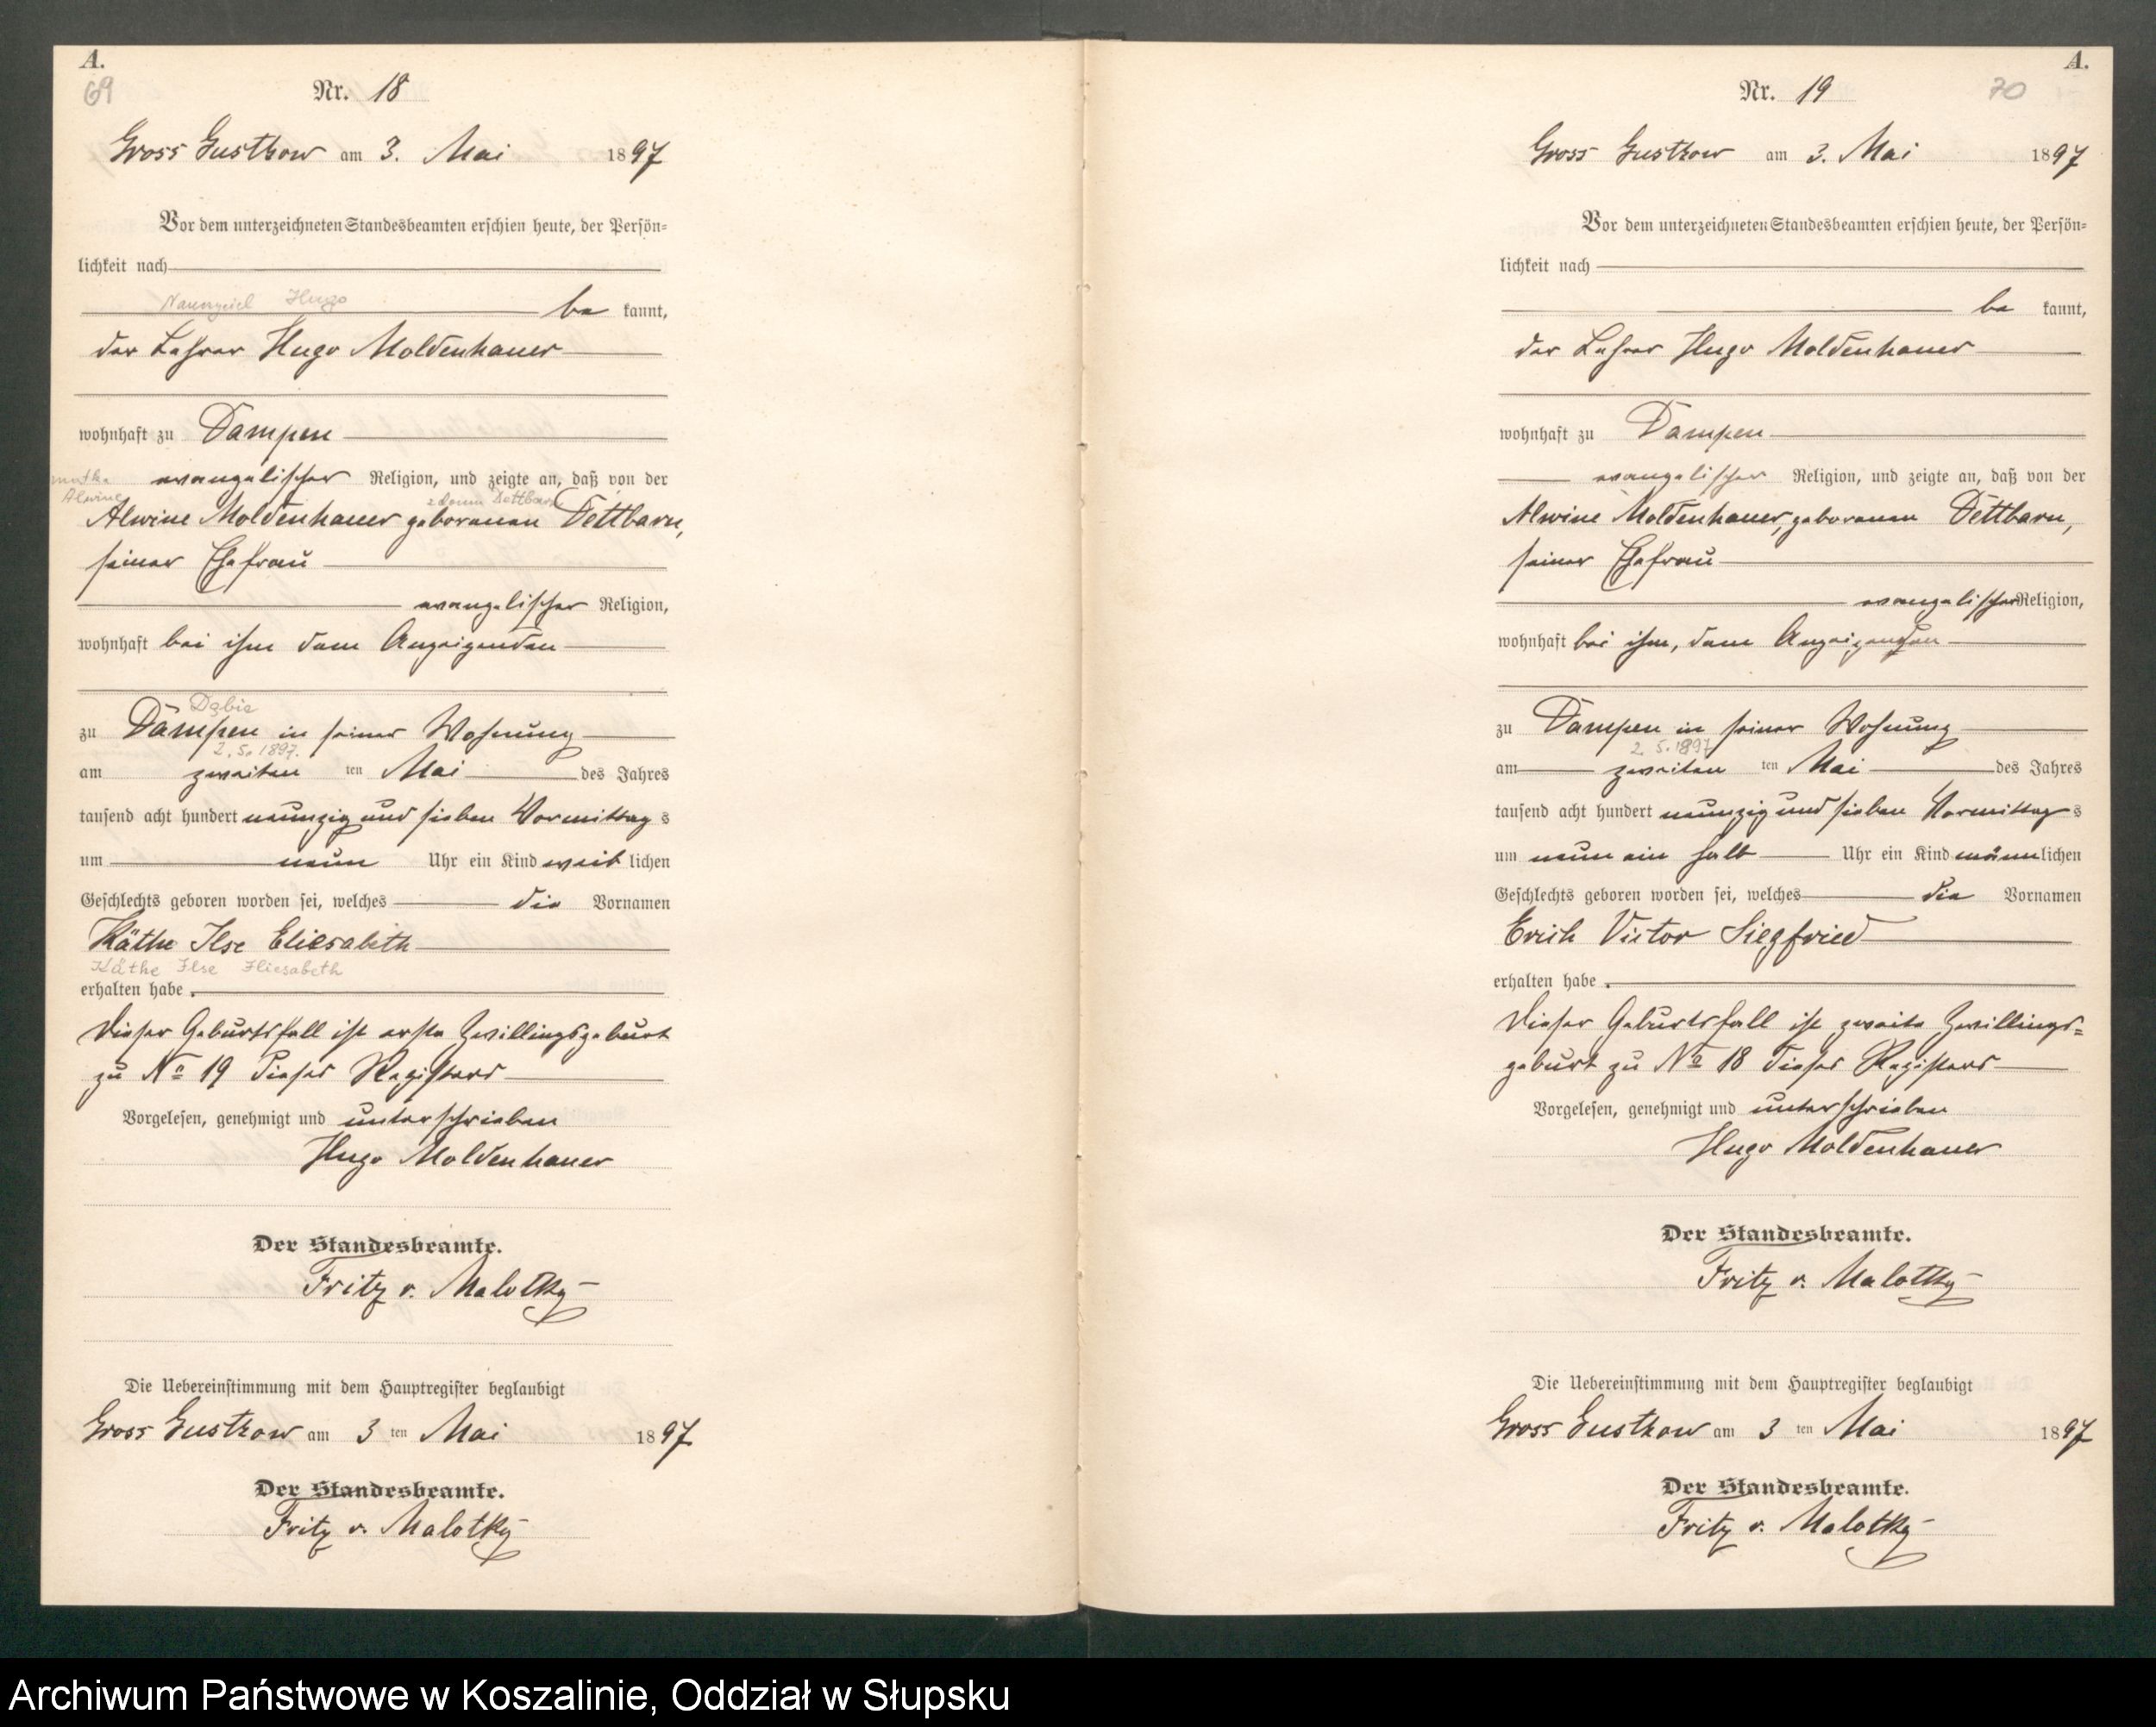 A.
69
Nr. 18
Gross Gustkow am 3. Mai 1897
Vor dem unterzeichneten Standesbeamten erschien heute, der Persön-
lichkeit nach
Hugo
be kannt,
der Lehrer Hugo Moldenhauer
wohnhaft zu Dampen
matka evangelischer Religion, und zeigte an, daß von der
Alwine z domu Dettbarn
Alwine Moldenhauer geborenen Dettbarn,
seiner Ehefrau
evangelischer Religion,
wohnhaft bei ihm dem Anzeigenden
Dąbie
zu Dampen in seiner Wohnung
2.5.1897.
am zweiten ten Mai des Jahres
tausend acht hundert neunzig und sieben Vormittag s
um neun Uhr ein Kind weib lichen
Geschlechts geboren worden sei, welches die Vornamen
Käthe Ilse Eliesabeth
Käthe Ilse Eliesabeth
erhalten habe.
Dieser Geburtsfall ist erste Zwillingsgeburt
zu No 19 dieses Registers
Vorgelesen, genehmigt und unterschrieben
Hugo Moldenhauer
Der Standesbeamte.
Fritz v. Malotky
Die Uebereinstimmung mit dem Hauptregister beglaubigt
Gross Gustkow am 3 ten Mai 1897
Der Standesbeamte.
Fritz v. Malotky
A.
70
Nr. 19
Gross Gustkow am 3. Mai 1897
Vor dem unterzeichneten Standesbeamten erschien heute, der Persön-
lichkeit nach
be kannt,
der Lehrer Hugo Moldenhauer
wohnhaft zu Dampen
evangelischer Religion, und zeigte an, daß von der
Alwine Moldenhauer, geborenen Dettbarn,
seiner Ehefrau
evangelischer Religion,
wohnhaft bei ihm, dem Anzeigenden
zu Dampen in seiner Wohnung
2.5.1897
am zweiten ten Mai des Jahres
tausend acht hundert neunzig und sieben Vormittag s
um neun ein halb Uhr ein Kind männlichen
Geschlechts geboren worden sei, welches die Vornamen
Erich Victor Siegfried
erhalten habe.
Dieser Geburtsfall ist zweite Zwillings-
geburt zu No 18 dieses Registers
Vorgelesen, genehmigt und unterschrieben
Hugo Moldenhauer
Der Standesbeamte.
Fritz v. Malotky
Die Uebereinstimmung mit dem Hauptregister beglaubigt
Gross Gustkow am 3 ten Mai 1897
Der Standesbeamte.
Fritz v. Malotky
Archiwum Państwowe w Koszalinie, Oddział w Słupsku